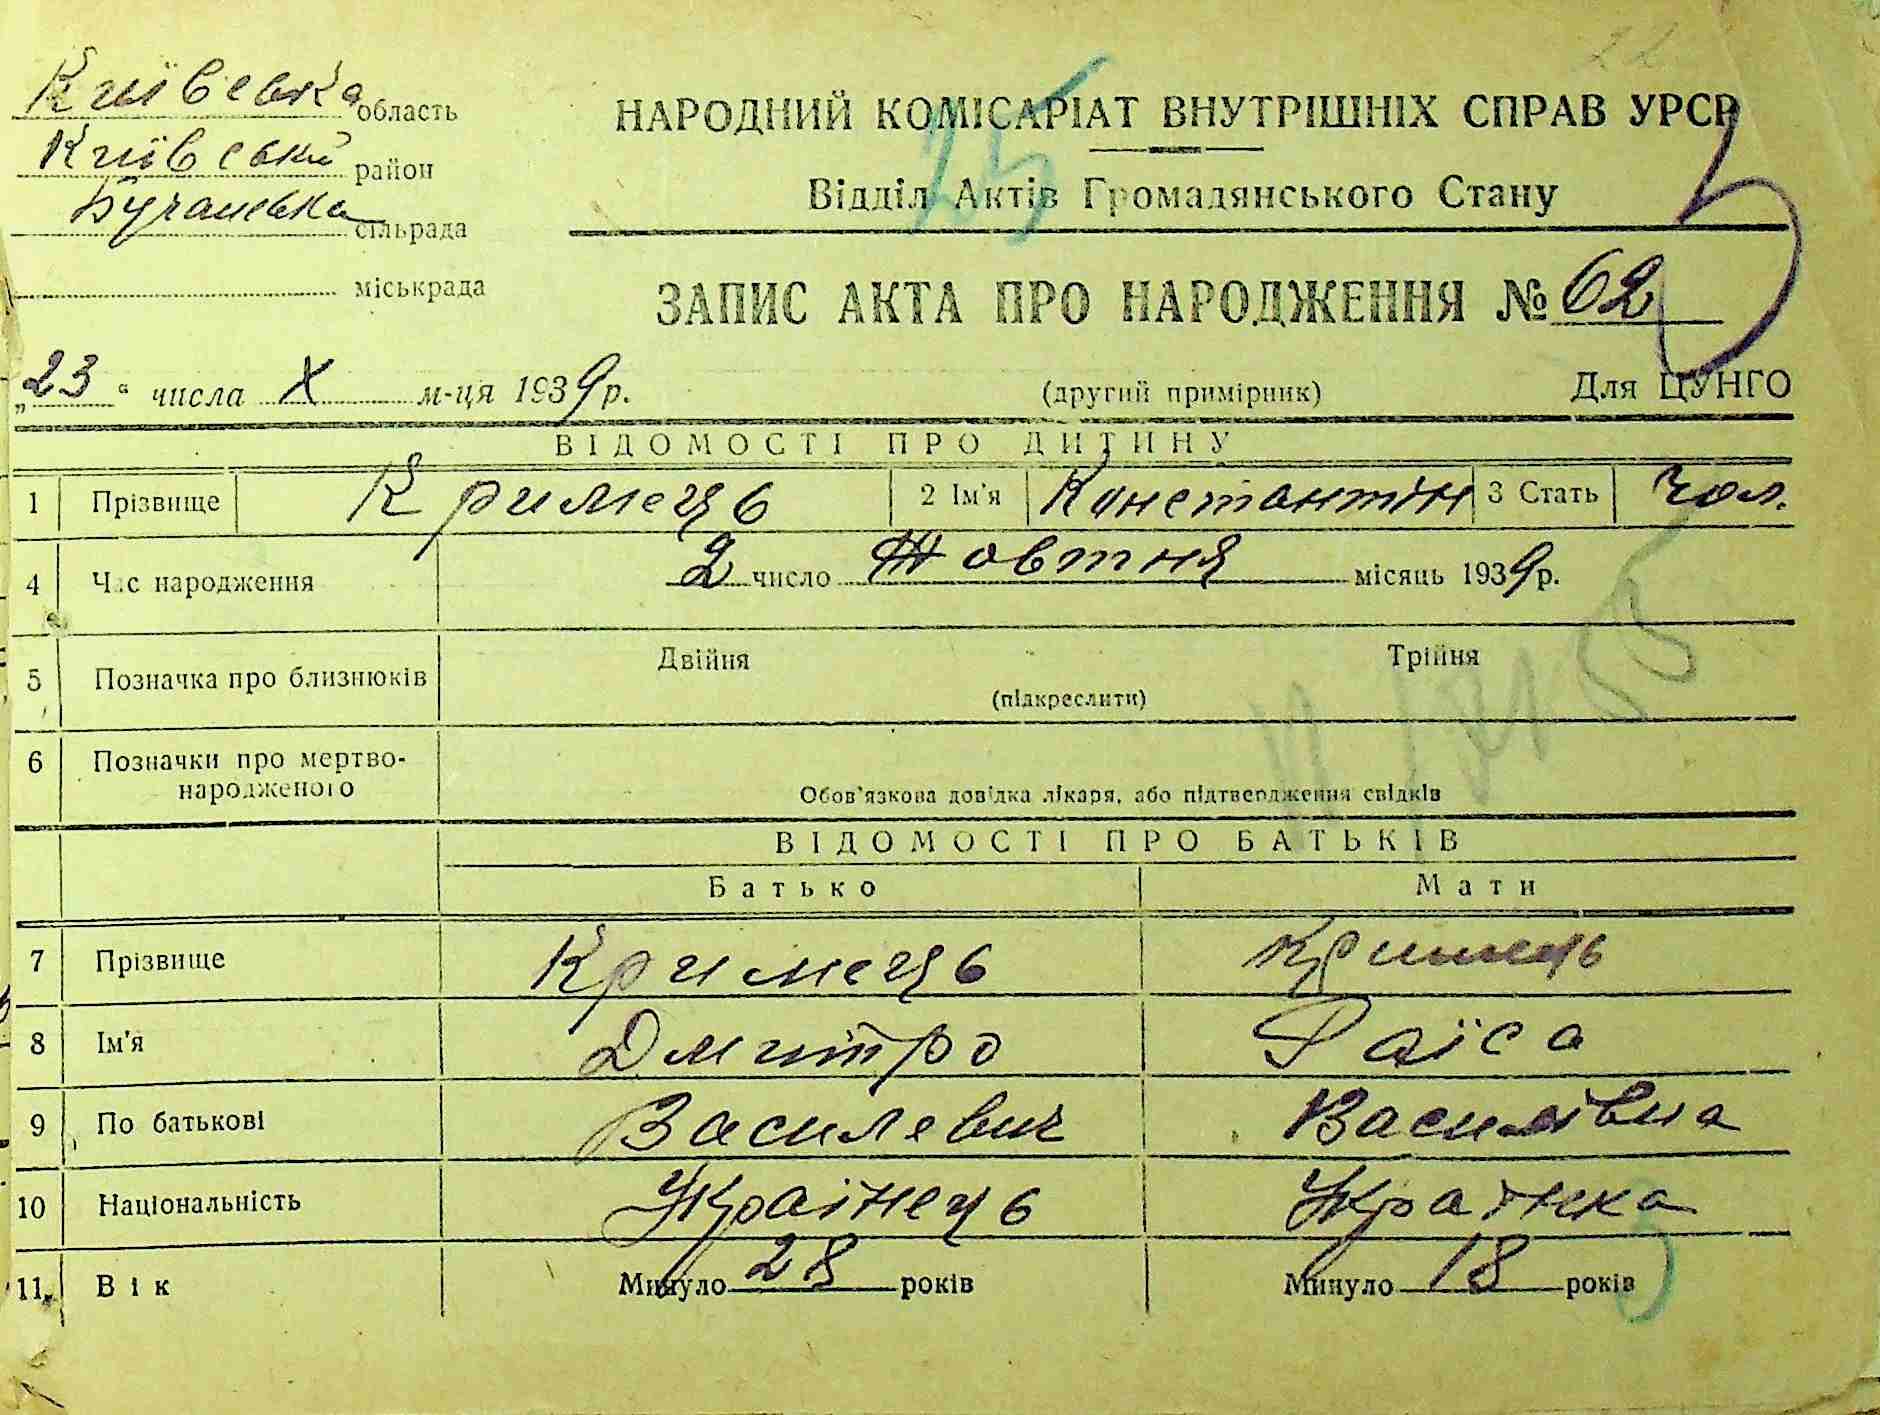 Київська область
Київський район
Бучанська сільрада
міськрада
НАРОДНИЙ КОМІСАРІАТ ВНУТРІШНІХ СПРАВ УРСР
Відділ Актів Громадянського Стану
ЗАПИС АКТА ПРО НАРОДЖЕННЯ № 62
25
5
„23“ числа X м-ця 1939 р.
(другий примірник)
Для ЦУНГО
ВІДОМОСТІ ПРО ДИТИНУ
1 Прізвище Кримець 2 Ім'я Константін 3 Стать чол.
4 Час народження 2 число Жовтня місяць 1939 р.
5 Позначка про близнюків Двійня Трійня
(підкреслити)
6 Позначки про мертво-
народженого
Обов'язкова довідка лікаря, або підтвердження свідків
ВІДОМОСТІ ПРО БАТЬКІВ
Батько Мати
7 Прізвище Кримець Кримець
8 Ім'я Дмитро Раїса
9 По батькові Василевич Василівна
10 Національність Украінець Украінка
11. Вік Минуло 28 років Минуло 18 років